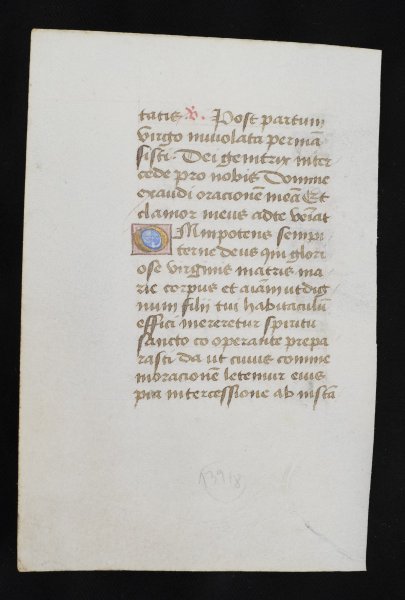 tatis v. Post partum
virgo inviolata permā
sisti. Dei genitrix inter
cede pro nobis Domine
exaudi oracionē meā Et
clamor meus ad te veīat
OMnipotens sempi
terne deus qui glori
ose virginis matris ma
rie corpus et aīam ut dig
num filii tui habitaculū
effici mereretur spiritu
sancto co operante prepa
rasti da ut cuius comme
moracionē letemur eius
pia intercessione ab instā